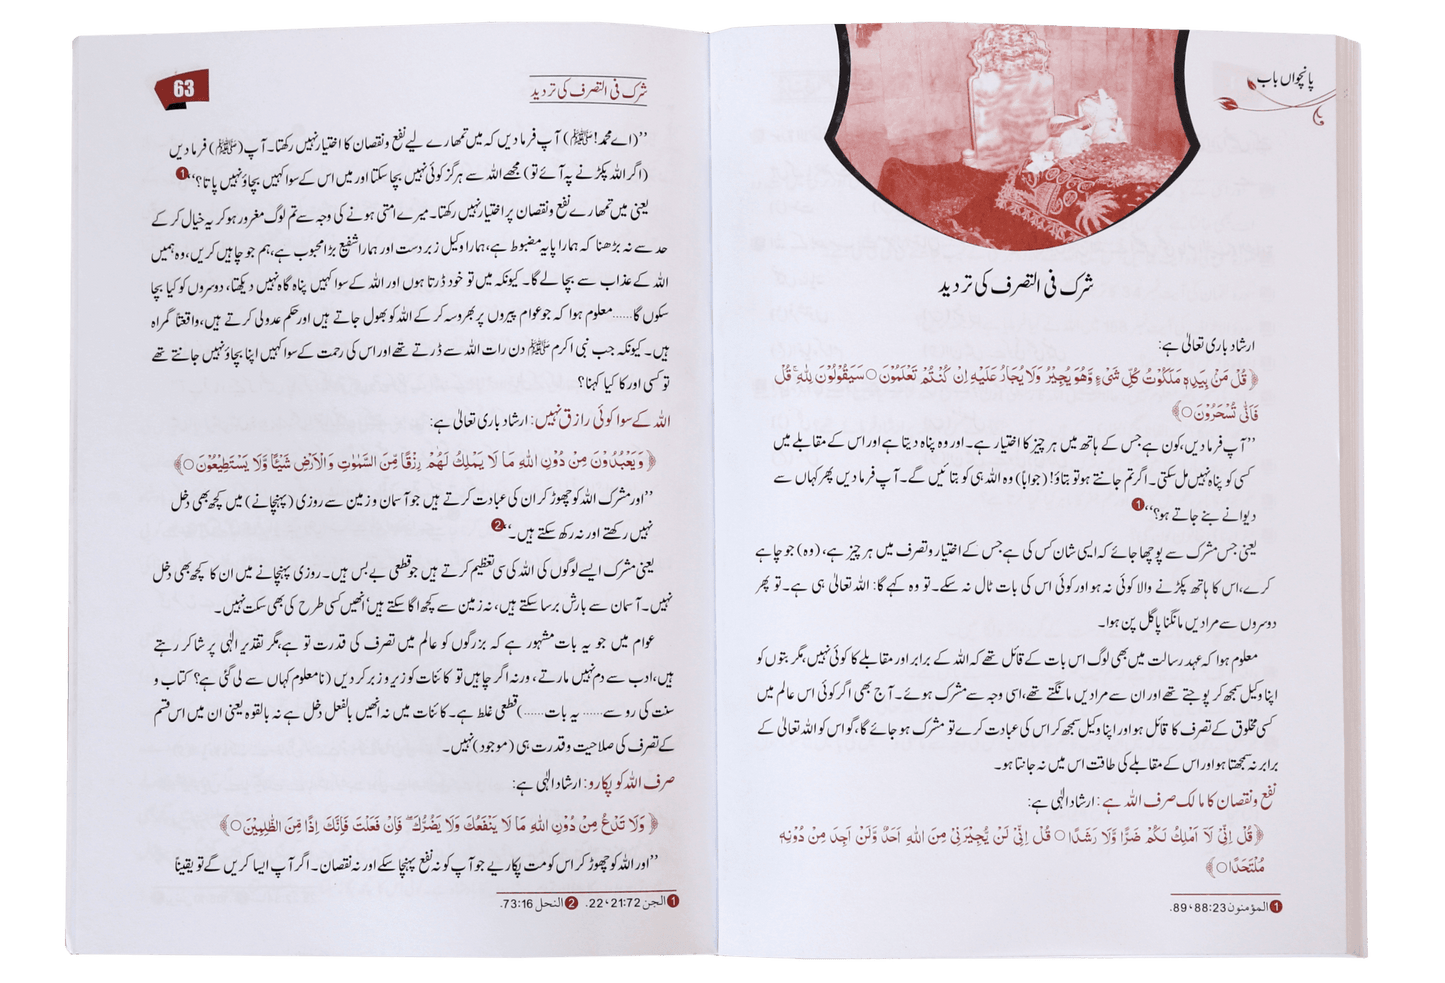 پانچواں باب
شرک فی التصرف کی تردید
ارشاد باری تعالیٰ ہے:
﴿قُلْ مَنْ بِيَدِهٖ مَلَكُوْتُ كُلِّ شَيْءٍ وَّهُوَ يُجِيْرُ وَلَا يُجَارُ عَلَيْهِ اِنْ كُنْتُمْ تَعْلَمُوْنَ ○ سَيَقُوْلُوْنَ لِلّٰهِ ۭ قُلْ
فَاَنّٰى تُسْحَرُوْنَ ○﴾
’’آپ فرما دیں، کون ہے جس کے ہاتھ میں ہر چیز کا اختیار ہے۔ اور وہ پناہ دیتا ہے اور اس کے مقابلے میں
کسی کو پناہ نہیں مل سکتی۔ اگر تم جانتے ہو تو بتاؤ! (جواباً) وہ اللہ ہی کو بتائیں گے۔ آپ فرما دیں پھر کہاں سے
دیوانے بنے جاتے ہو؟‘‘ 1
یعنی جس مشرک سے پوچھا جائے کہ ایسی شان کس کی ہے جس کے اختیار و تصرف میں ہر چیز ہے، (وہ) جو چاہے
کرے، اس کا ہاتھ پکڑنے والا کوئی نہ ہو اور کوئی اس کی بات ٹال نہ سکے۔ تو وہ کہے گا: اللہ تعالیٰ ہی ہے۔ تو پھر
دوسروں سے مرادیں مانگنا پاگل پن ہوا۔
معلوم ہوا کہ عہد رسالت میں بھی لوگ اس بات کے قائل تھے کہ اللہ کے برابر اور مقابلے کا کوئی نہیں، مگر بتوں کو
اپنا وکیل سمجھ کر پوجتے تھے اور ان سے مرادیں مانگتے تھے، اسی وجہ سے مشرک ہوئے۔ آج بھی اگر کوئی اس عالم میں
کسی مخلوق کے تصرف کا قائل ہو اور اپنا وکیل سمجھ کر اس کی عبادت کرے تو مشرک ہو جائے گا، گو اس کو اللہ تعالیٰ کے
برابر نہ سمجھتا ہو اور اس کے مقابلے کی طاقت اس میں نہ جانتا ہو۔
نفع و نقصان کا مالک صرف اللہ ہے: ارشاد الٰہی ہے:
﴿قُلْ اِنِّيْ لَآ اَمْلِكُ لَكُمْ ضَرًّا وَّلَا رَشَدًا ○ قُلْ اِنِّيْ لَنْ يُّجِيْرَنِيْ مِنَ اللّٰهِ اَحَدٌ وَّلَنْ اَجِدَ مِنْ دُوْنِهٖ
مُلْتَحَدًا ○﴾
1 المؤمنون 23:88، 89.
شرک فی التصرف کی تردید
63
’’(اے محمد! ﷺ) آپ فرما دیں کہ میں تمھارے لیے نفع و نقصان کا اختیار نہیں رکھتا۔ آپ (ﷺ) فرما دیں
(اگر اللہ پکڑنے پہ آئے تو) مجھے اللہ سے ہرگز کوئی نہیں بچا سکتا اور میں اس کے سوا کہیں بچاؤ نہیں پاتا؟‘‘ 1
یعنی میں تمھارے نفع و نقصان پر اختیار نہیں رکھتا۔ میرے امتی ہونے کی وجہ سے تم لوگ مغرور ہو کر یہ خیال کر کے
حد سے نہ بڑھنا کہ ہمارا پایہ مضبوط ہے، ہمارا وکیل زبردست اور ہمارا شفیع بڑا محبوب ہے، ہم جو چاہیں کریں، وہ ہمیں
اللہ کے عذاب سے بچا لے گا۔ کیونکہ میں تو خود ڈرتا ہوں اور اللہ کے سوا کہیں پناہ گاہ نہیں دیکھتا، دوسروں کو کیا بچا
سکوں گا...... معلوم ہوا کہ جو عوام پیروں پر بھروسہ کر کے اللہ کو بھول جاتے ہیں اور حکم عدولی کرتے ہیں، واقعتاً گمراہ
ہیں۔ کیونکہ جب نبی اکرم ﷺ دن رات اللہ سے ڈرتے تھے اور اس کی رحمت کے سوا کہیں اپنا بچاؤ نہیں جانتے تھے
تو کسی اور کا کیا کہنا؟
اللہ کے سوا کوئی رازق نہیں: ارشاد باری تعالیٰ ہے:
﴿وَيَعْبُدُوْنَ مِنْ دُوْنِ اللّٰهِ مَا لَا يَمْلِكُ لَهُمْ رِزْقًا مِّنَ السَّمٰوٰتِ وَالْاَرْضِ شَيْئًا وَّلَا يَسْتَطِيْعُوْنَ ○﴾
’’اور مشرک اللہ کو چھوڑ کر ان کی عبادت کرتے ہیں جو آسمان و زمین سے روزی (پہنچانے) میں کچھ بھی دخل
نہیں رکھتے اور نہ رکھ سکتے ہیں۔‘‘ 2
یعنی مشرک ایسے لوگوں کی اللہ کی سی تعظیم کرتے ہیں جو قطعی بے بس ہیں۔ روزی پہنچانے میں ان کا کچھ بھی دخل
نہیں۔ آسمان سے بارش برسا سکتے ہیں، نہ زمین سے کچھ اگا سکتے ہیں، انھیں کسی طرح کی بھی سکت نہیں۔
عوام میں جو یہ بات مشہور ہے کہ بزرگوں کو عالم میں تصرف کی قدرت تو ہے، مگر تقدیر الٰہی پر شاکر رہتے
ہیں، ادب سے دم نہیں مارتے، ورنہ اگر چاہیں تو کائنات کو زیر و زبر کر دیں (نامعلوم کہاں سے لی گئی ہے؟ کتاب و
سنت کی رو سے...... یہ بات......) قطعی غلط ہے۔ کائنات میں نہ انھیں بالفعل دخل ہے نہ بالقوہ یعنی ان میں اس قسم
کے تصرف کی صلاحیت و قدرت ہی (موجود) نہیں۔
صرف اللہ کو پکارو: ارشاد الٰہی ہے:
﴿وَلَا تَدْعُ مِنْ دُوْنِ اللّٰهِ مَا لَا يَنْفَعُكَ وَلَا يَضُرُّكَ ۚ فَاِنْ فَعَلْتَ فَاِنَّكَ اِذًا مِّنَ الظّٰلِمِيْنَ ○﴾
’’اور اللہ کو چھوڑ کر اس کو مت پکاریے جو آپ کو نہ نفع پہنچا سکے اور نہ نقصان۔ اگر آپ ایسا کریں گے تو یقیناً
1 الجن 72:21، 22. 2 النحل 16:73.